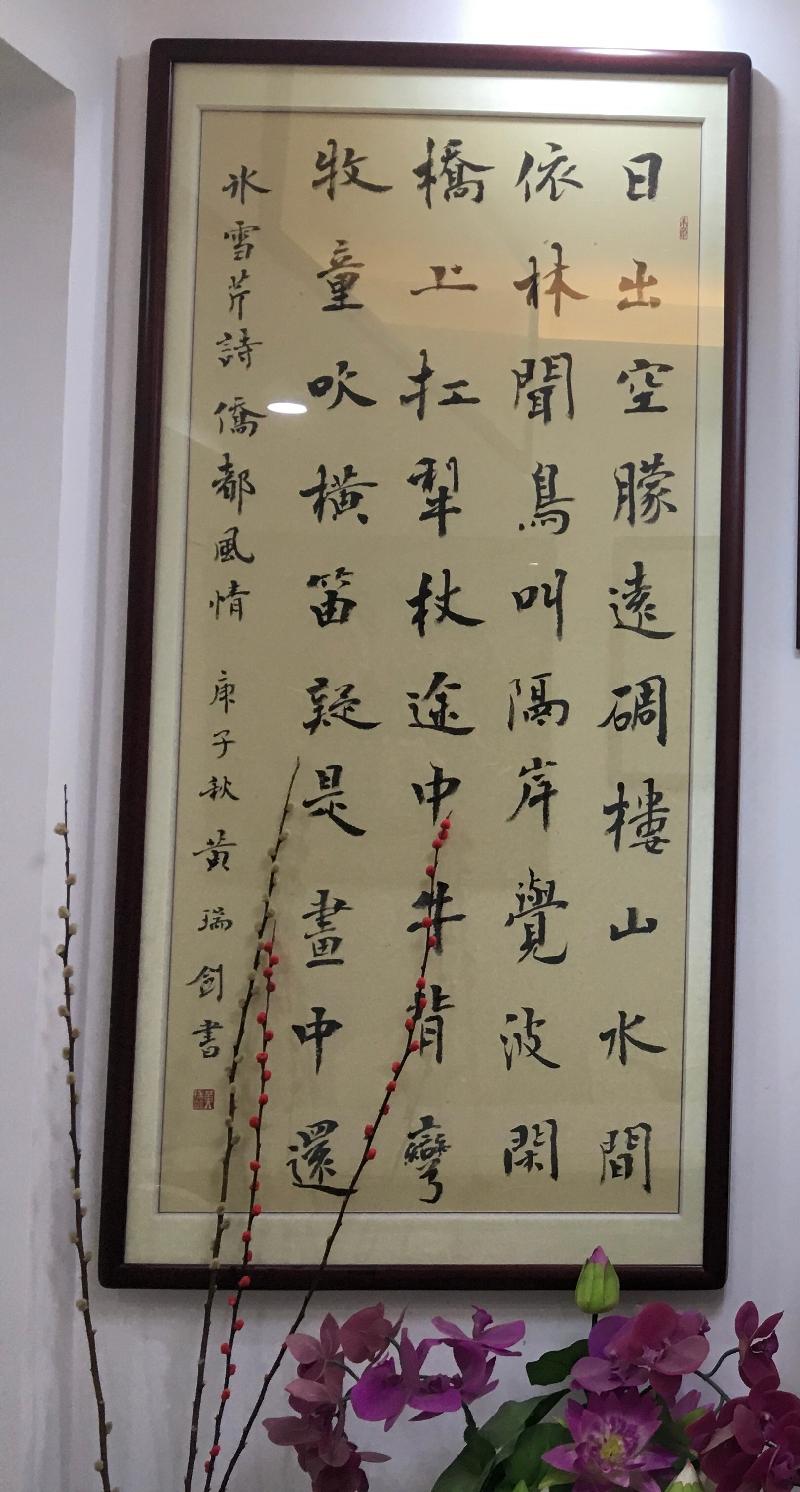 日出空朦遠碉樓山水間
依林聞鳥叫隔岸覺波閑
橋上扛犁杖途中牛背彎
牧童吹橫笛疑是畫中還
冰雪芹詩僑都風情 庚子秋 黃瑞劍書